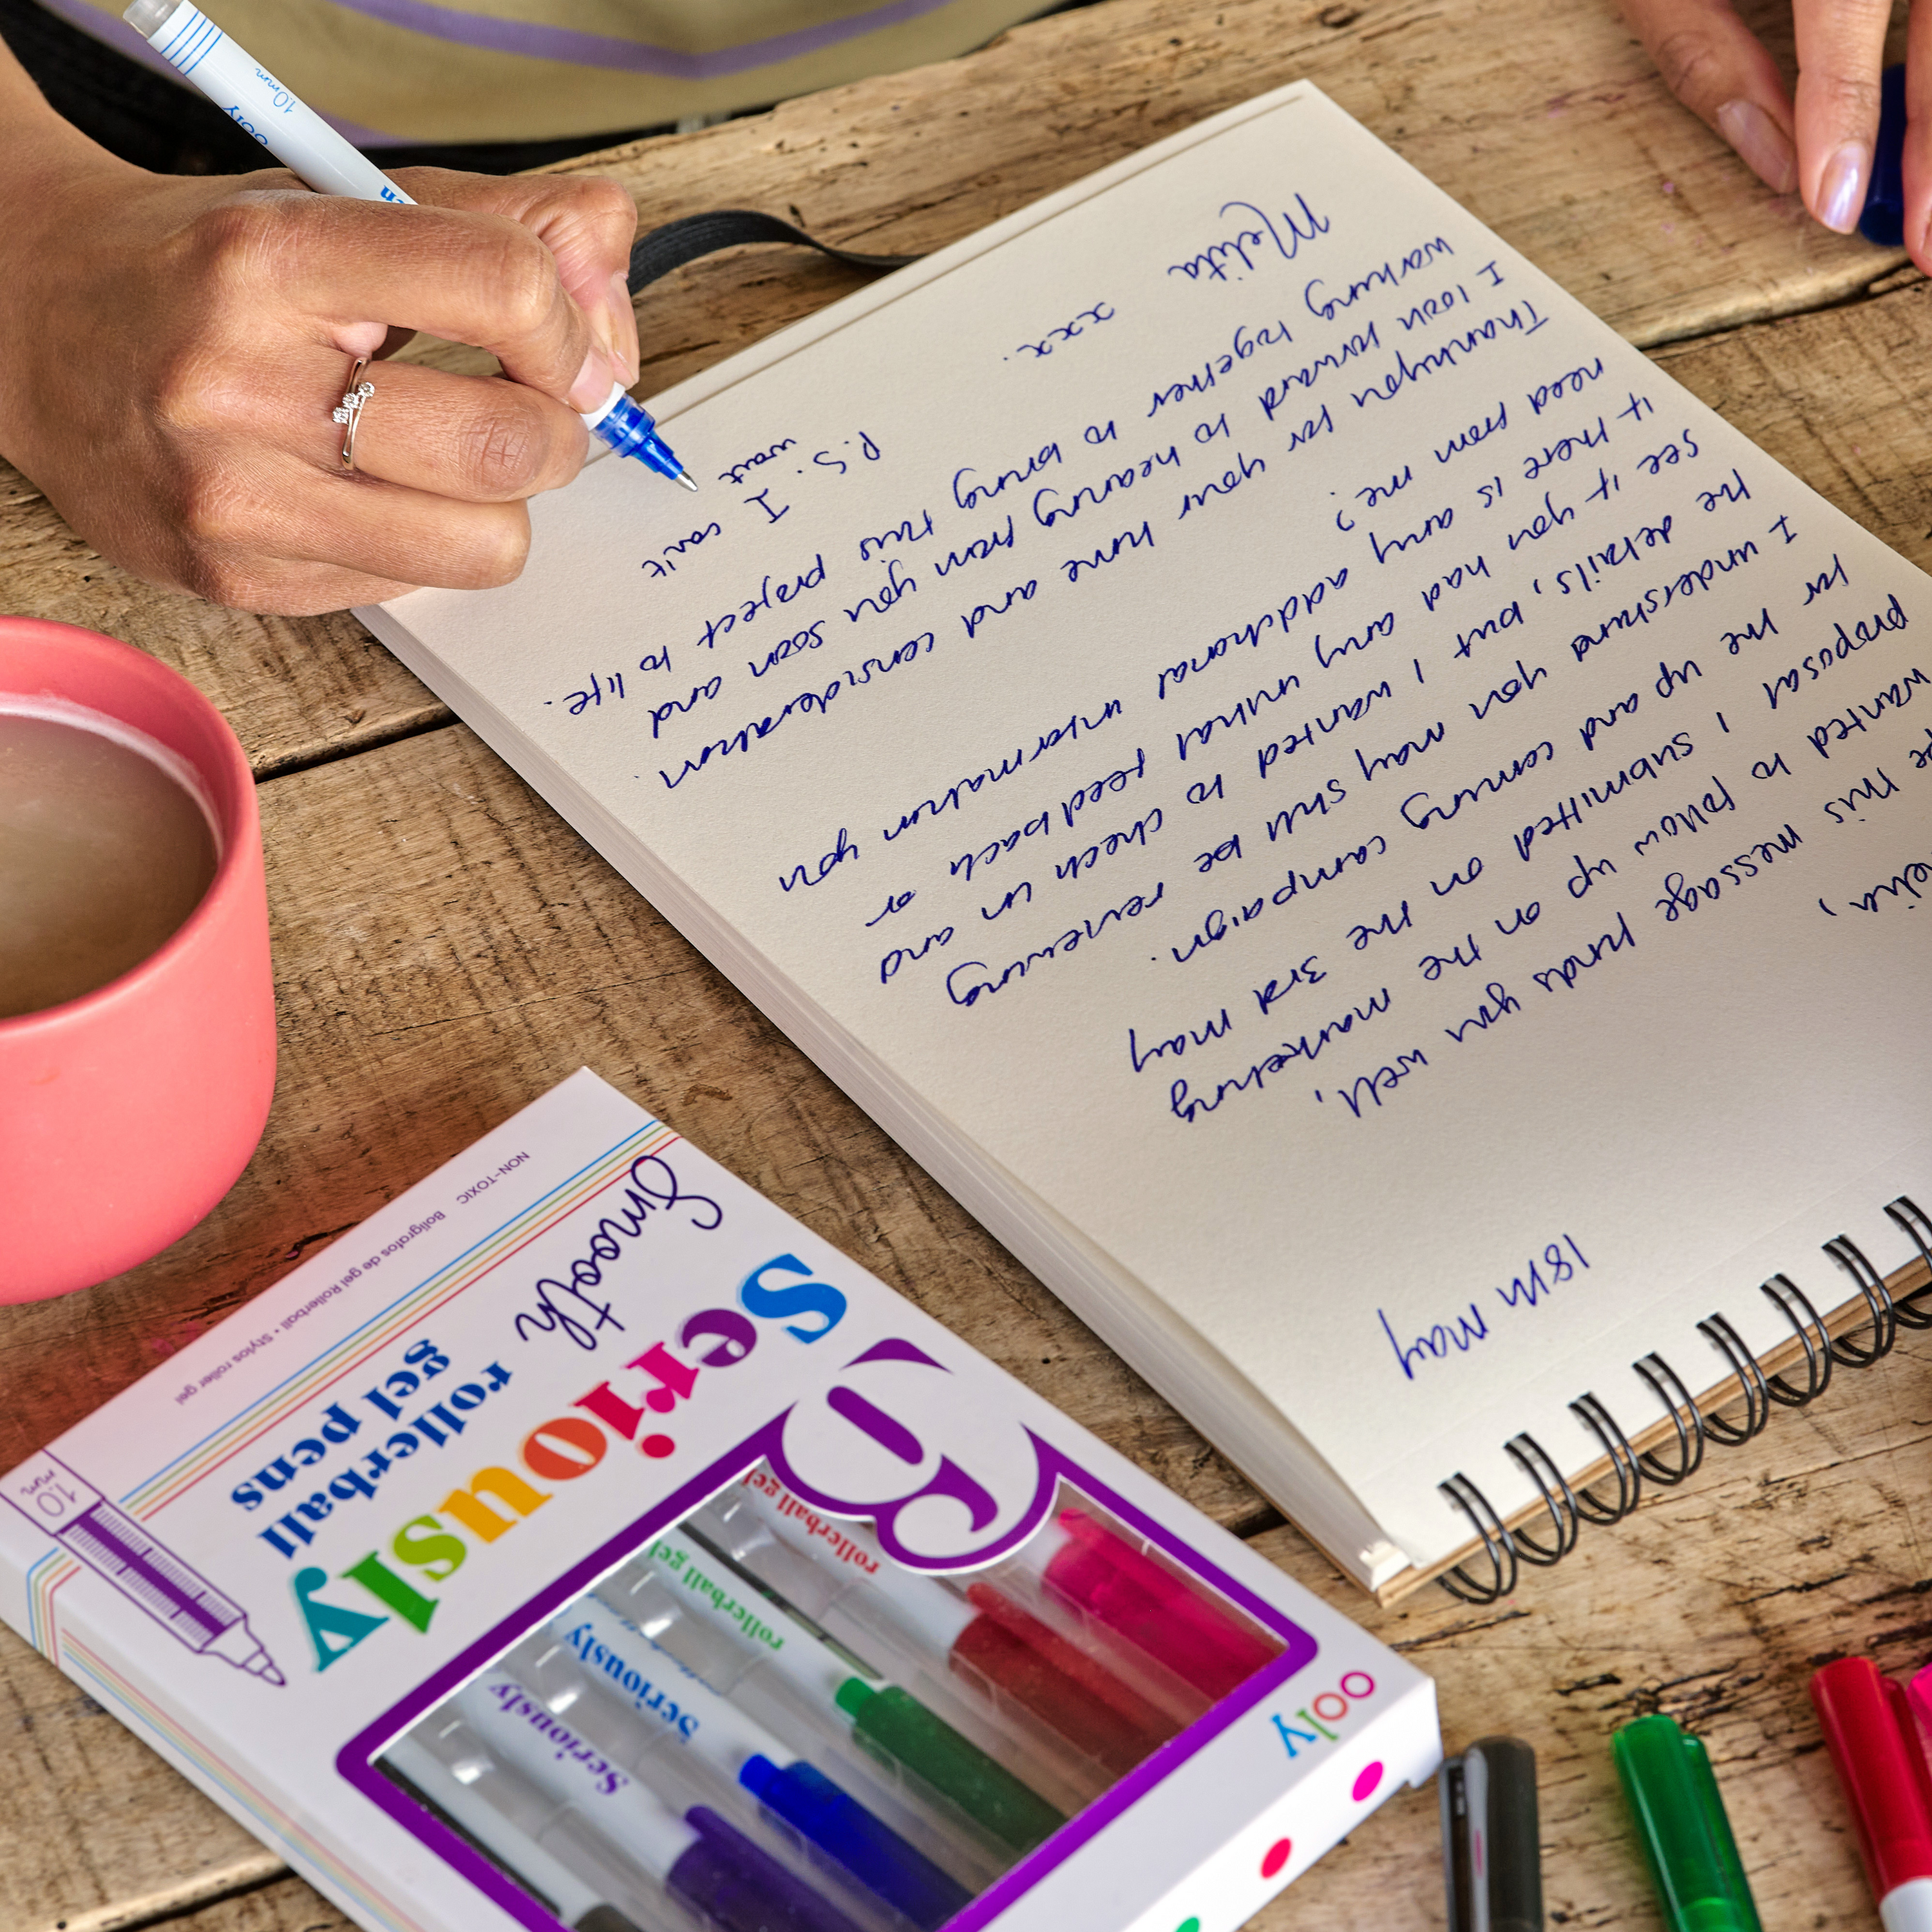 18th may
this message finds you well,
wanted to follow up on the marketing
proposal I submitted on the 3rd may
for the up and coming campaign.
I understand you may still be reviewing
the details, but I wanted to check in and
see if you had any initial feedback or
if there is any additional information you
need from me?
Thankyou for your time and consideration.
I look forward to hearing from you soon and
working together to bring this project to life.
Melita
xxx.
P.S. I can't
wait
ooly
1.0mm
Smooth
Seriously
rollerball
gel pens
6
NON-TOXIC
Bolígrafos de gel Rollerball • Stylos roller gel
1.0
mm
rollerball gel
rollerball gel
Seriously
Seriously
ooly